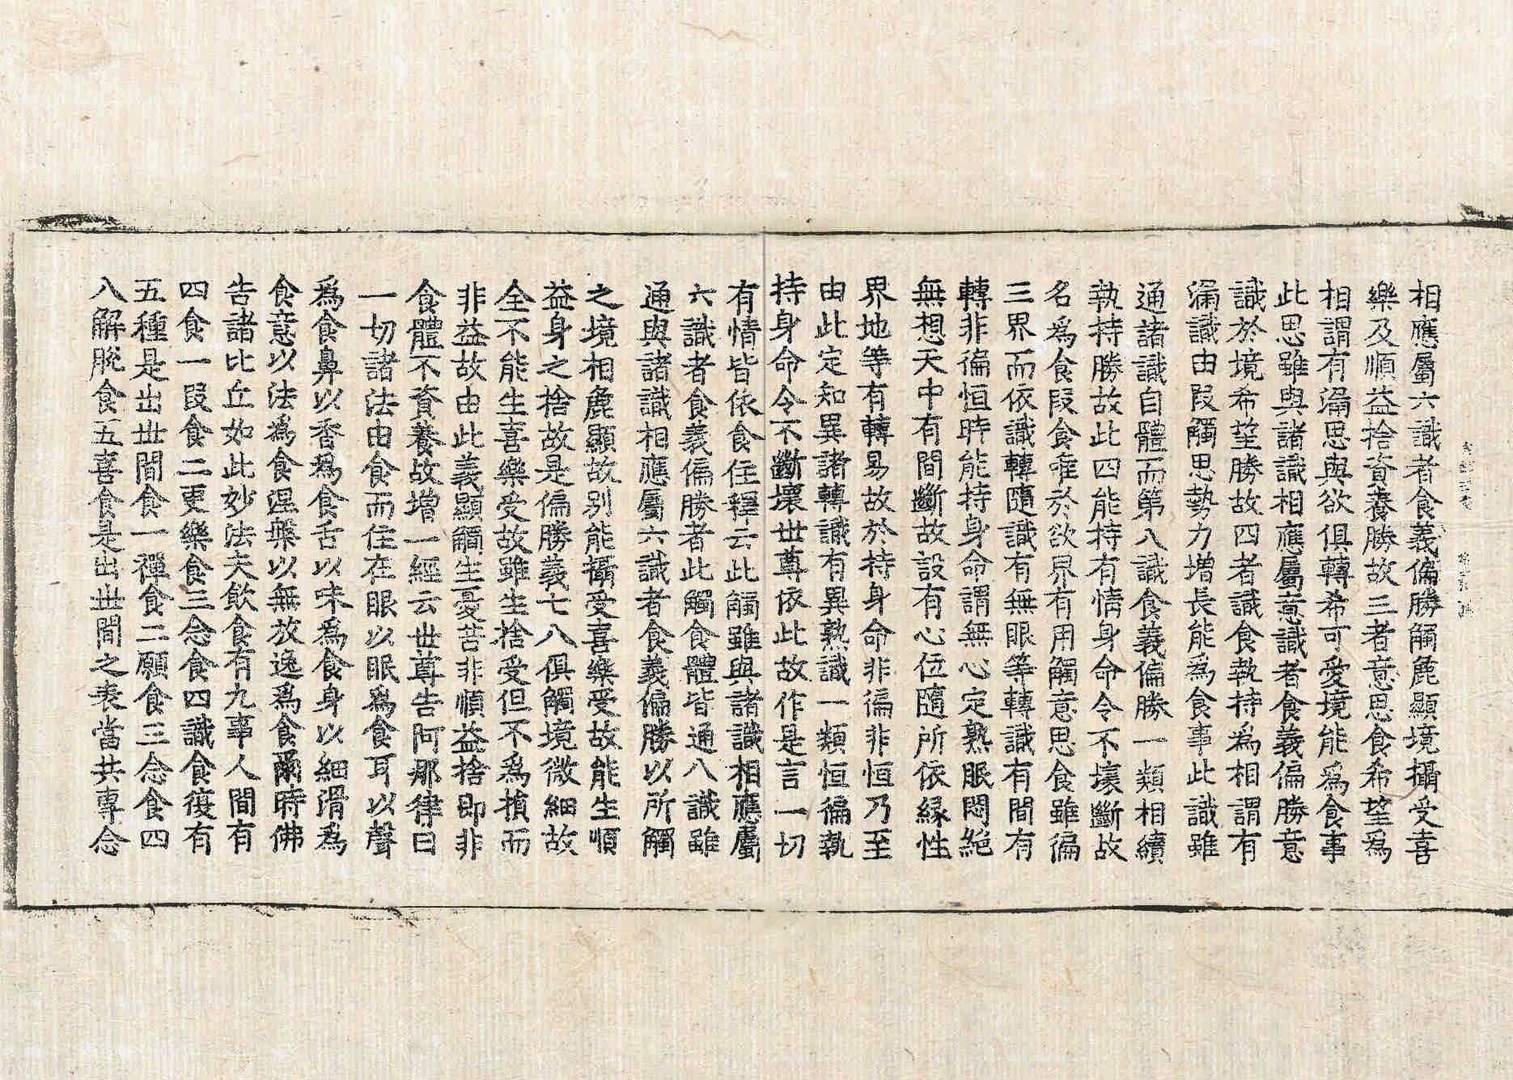 相應屬六識者食義偏勝觸麁顯境攝受喜
樂及順益捨資養勝故三者意思食希望爲
相謂有漏思與欲俱轉希可愛境能爲食事
此思雖與諸識相應屬意識者食義偏勝意
識於境希望勝故四者識食執持爲相謂有
漏識由叚觸思勢力增長能爲食事此識雖
通諸識自體而第八識食義偏勝一類相續
執持勝故此四能持有情身命令不壞斷故
名爲食叚食唯於欲界有用觸意思食雖徧
三界而依識轉隨識有無眼等轉識有間有
轉非徧恒時能持身命謂無心定熟眠悶絕
無想天中有間斷故設有心位隨所依緣性
界地等有轉易故於持身命非徧非恒乃至
由此定知異諸轉識有異熟識一類恒徧執
持身命令不斷壞世尊依此故作是言一切
有情皆依食住釋云此觸雖與諸識相應屬
六識者食義偏勝者此觸食體皆通八識雖
通與諸識相應屬六識者食義偏勝以所觸
之境相麁顯故别能攝受喜樂受故能生順
益身之捨故是偏勝義七八俱觸境微細故
全不能生喜樂受故雖生捨受但不爲損而
非益故由此義顯觸生憂苦非順益捨卽非
食體不資養故增一經云世尊告阿那律曰
一切諸法由食而住在眼以眼爲食耳以聲
爲食鼻以香爲食舌以味爲食身以細滑爲
食意以法爲食涅槃以無放逸爲食爾時佛
告諸比丘如此妙法夫飲食有九事人間有
四食一叚食二更樂食三念食四識食復有
五種是出世間食一禪食二願食三念食四
八解脫食五喜食是出世間之表當共專念